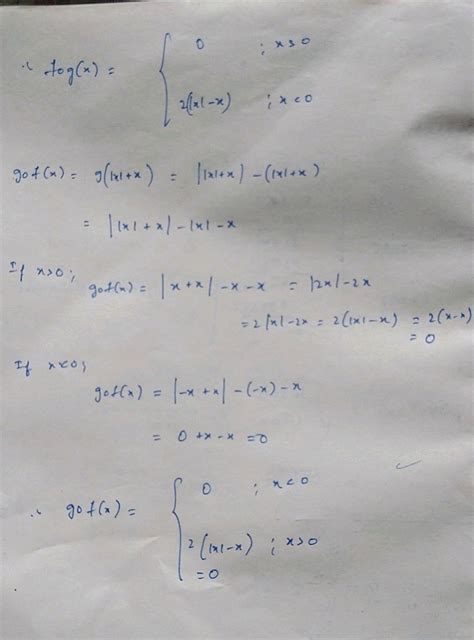 ∴ fog(x) = { 0 ; x≥0
2(|x|-x) ; x<0
gof(x) = g(|x|+x) = ||x|+x| - (|x|+x)
= ||x|+x| - |x| - x
If x>0; gof(x) = |x+x| - x - x = |2x| - 2x
= 2|x| - 2x = 2(|x|-x) = 2(x-x)
= 0
If x<0;
gof(x) = |-x+x| - (-x) - x
= 0 + x - x = 0
∴ gof(x) = { 0 ; x<0
2(|x|-x) ; x>0
=0